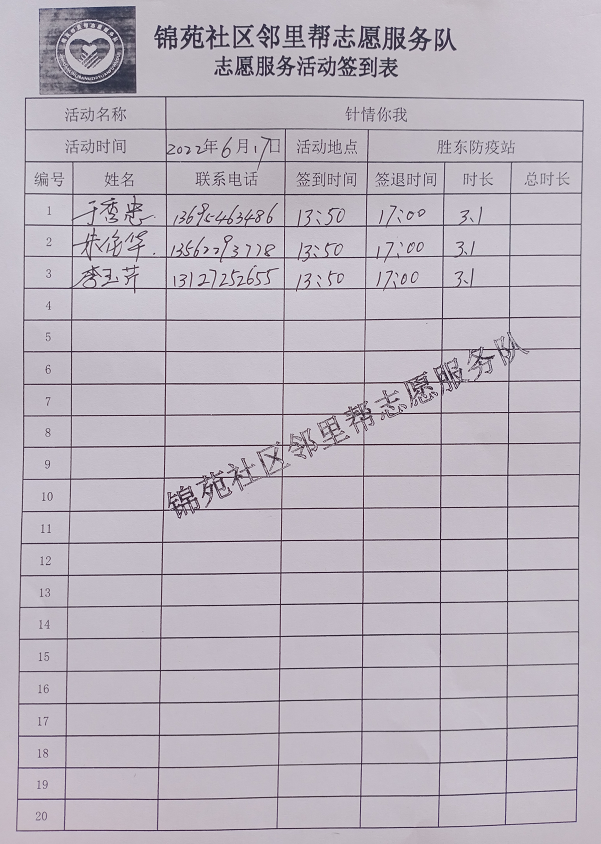 锦苑社区邻里帮志愿服务队
志愿服务活动签到表
活动名称 针情你我
活动时间 2022年6月17日 活动地点 胜东防疫站
编号 姓名 联系电话 签到时间 签退时间 时长 总时长
1 于秀忠 13695463486 13:50 17:00 3.1
2 朱 华 13562293778 13:50 17:00 3.1
3 李玉芹 13127252655 13:50 17:00 3.1
4
5
6
7
锦苑社区邻里帮志愿服务队
8
9
10
11
12
13
14
15
16
17
18
19
20